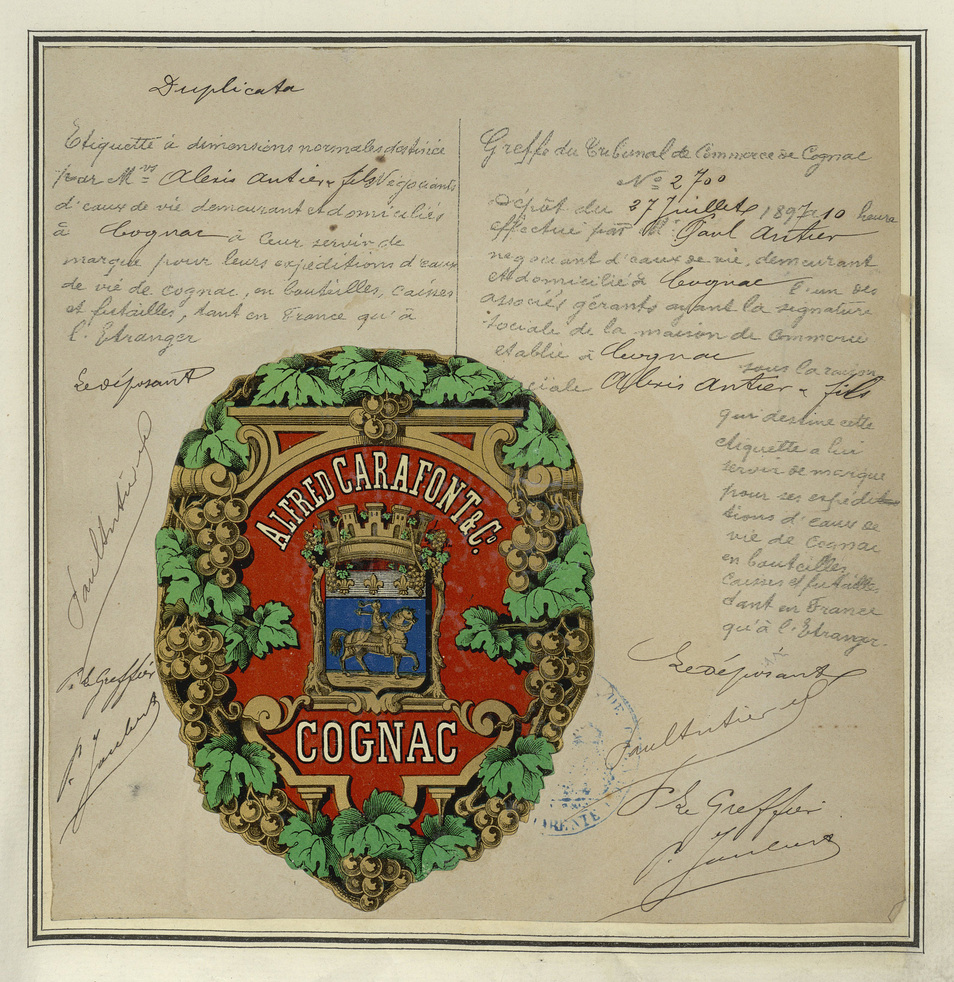 Duplicata
Etiquette à dimensions normales destinée
par M.rs Alexis Antier & fils Négociants
d'eaux de vie demeurant et domiciliés
à Cognac à leur servir de
marque pour leurs expéditions d'eaux
de vie de cognac, en bouteilles, caisses
et futailles, tant en France qu'à
l'Etranger
Le déposant
Paul Antier
P. le Greffier
Greffe du Tribunal de Commerce de Cognac
No 2700
Dépôt du 27 Juillet 1897 à 10 heures
effectué par M. Paul Antier
négociant d'eaux de vie, demeurant
et domicilié à Cognac l'un des
associés gérants ayant la signature
sociale de la maison de Commerce
etablie à Cognac
sous la raison
sociale Alexis Antier & fils
qui destine cette
etiquette a lui
servir de marque
pour ses expédi-
tions d'eaux de
vie de Cognac
en bouteilles
caisses et futailles
tant en France
qu'à l'Etranger.
Le déposant
Paul Antier
P. Le Greffier
ALFRED CARAFONT & Co.
COGNAC
DE
RENTE